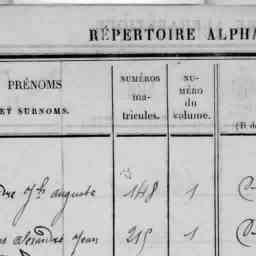 RÉPERTOIRE ALPHA
PRÉNOMS
ET SURNOMS.
NUMÉROS
ma-
tricules.
NU-
MÉRO
du
volume.
(B d
auguste 148 1
alexandre Jean 215 1